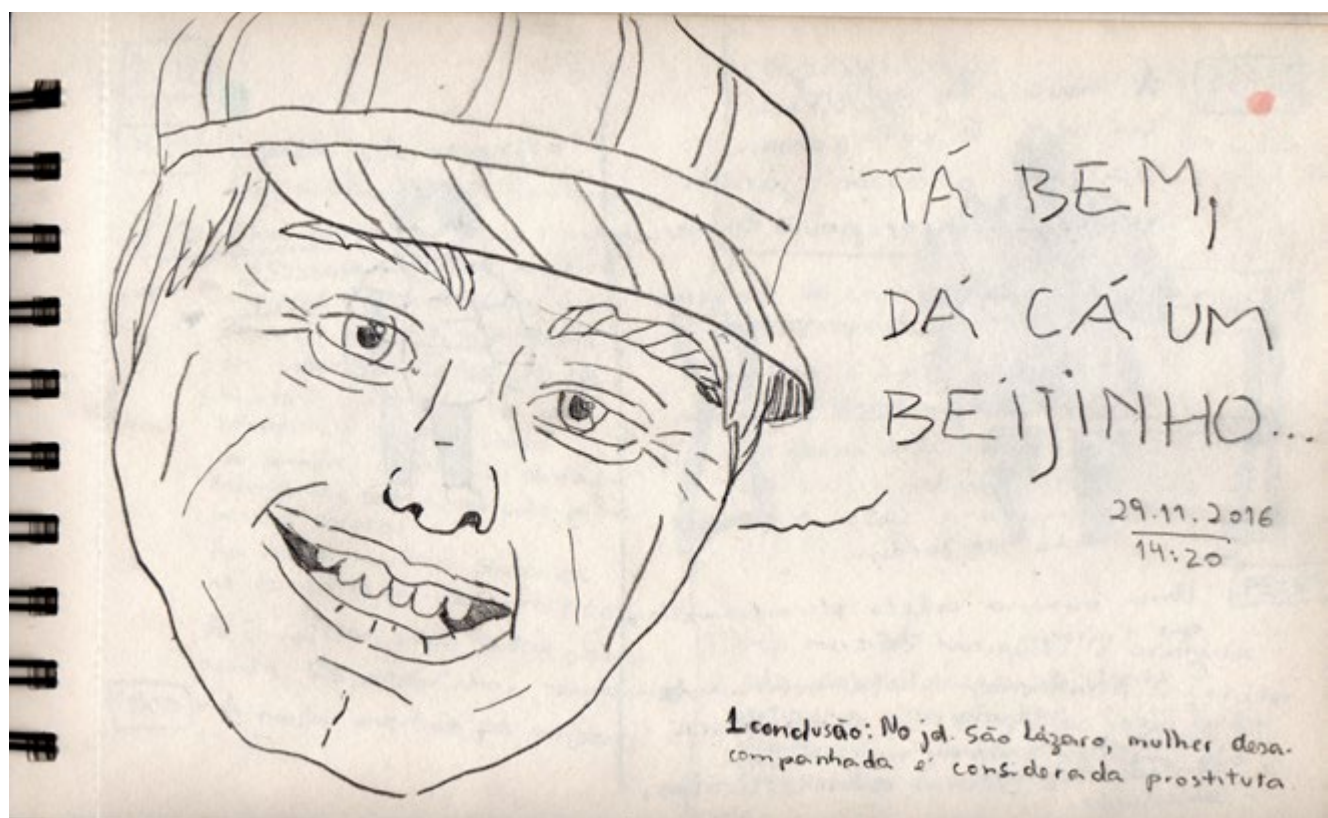 TÁ BEM,
DÁ CÁ UM
BEIJINHO...
29.11.2016
14:20
1 conclusão: No jd. São Lázaro, mulher desa-
companhada é considerada prostituta